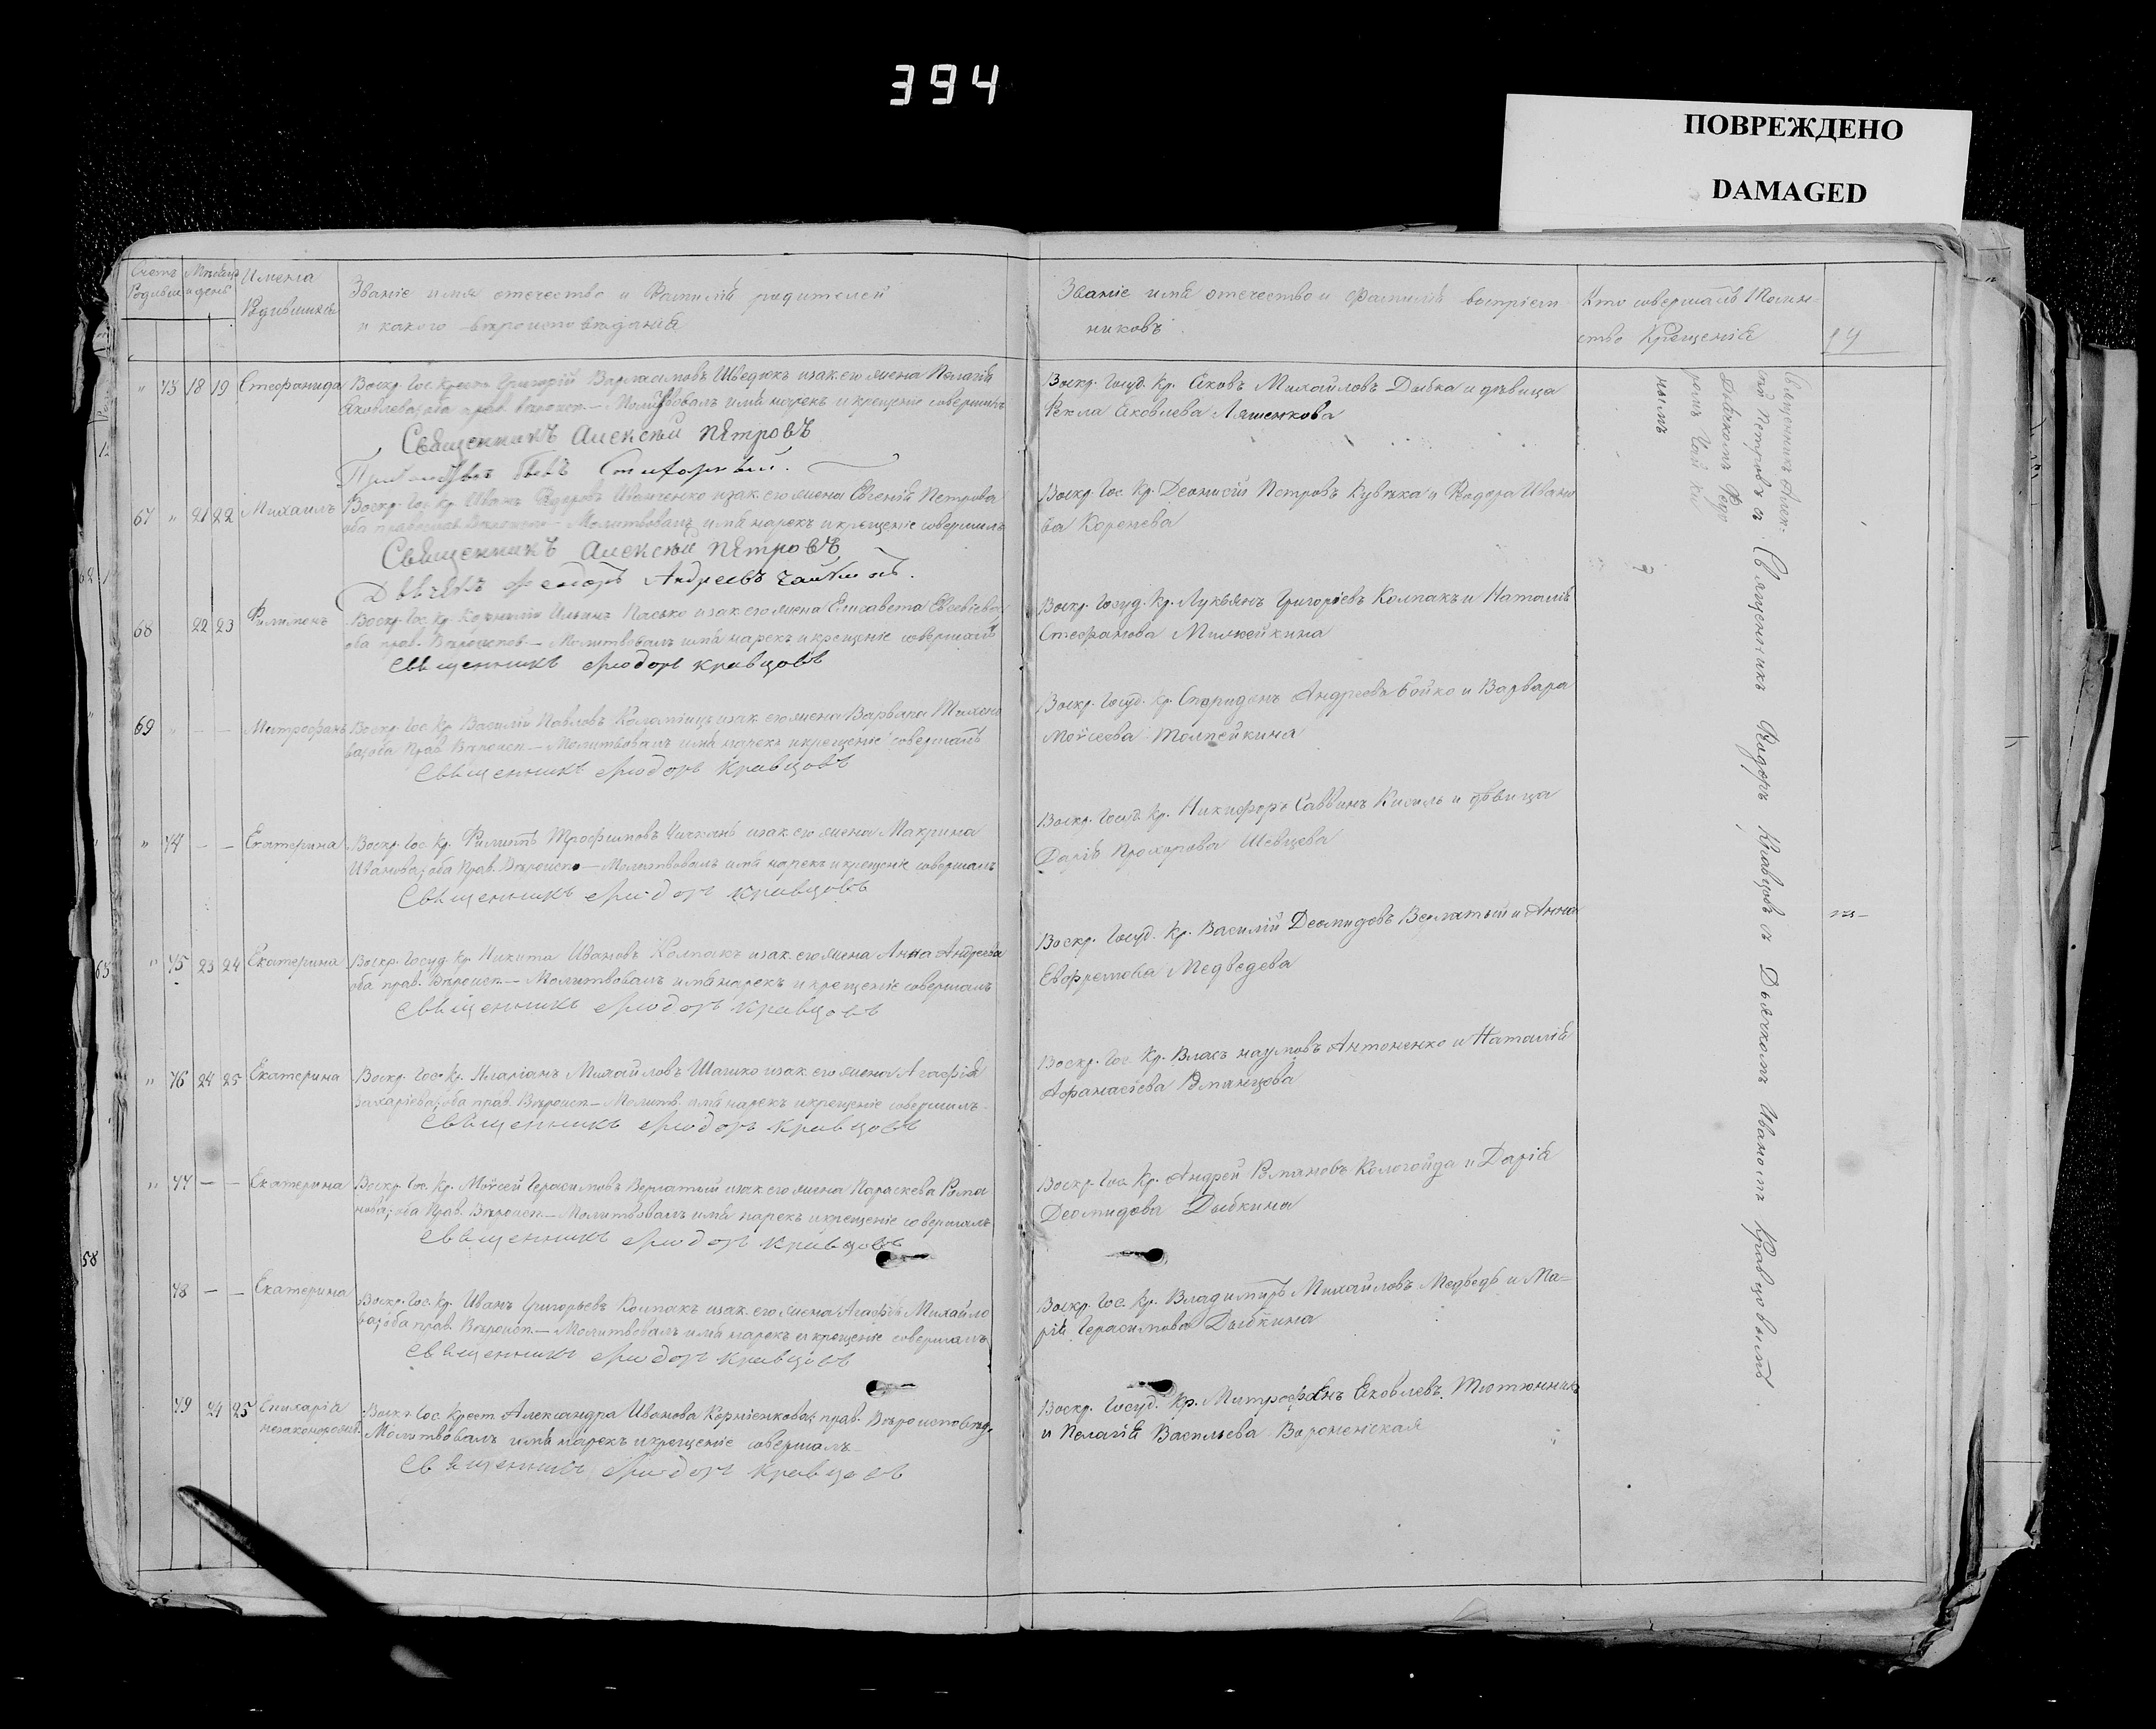 394
ПОВРЕЖДЕНО
DAMAGED
Счетъ Родивш.
Мѣсяцъ и день
Имена Родившихся
Званіе имя отечество и Фамилія родителей
и какого вѣроисповѣданія
Званіе имя отечество и Фамилія воспріем
никовъ
Кто совершалъ Таин
ство Крещенія
" 73 18 19 Стефанида
Воскр. Гос. Крест. Григорій Варлаамовъ Шведикъ изак. его жена Пелагія
Яковлева; оба прав. вѣроисп. — Молитвовалъ имя нарекъ и крещеніе совершилъ
Священникъ Алексѣй Петровъ
Воскр. Госуд. Кр. Яковъ Михайловъ Дыбка и дѣвица
Фекла Яковлева Ляшенкова
67 " 21 22 Михаилъ
Воскр. Гос. Кр. Иванъ Федоровъ Иванченко изак. его жена Евгенія Петрова
оба православ. Вѣроисп. — Молитвовалъ имя нарекъ и крещеніе совершилъ
Священникъ Алексѣй Петровъ
Дьячекъ Феодоръ Андреевъ
Воскр. Гос. Кр. Деонисій Петровъ Кувѣка и Феодора Ивано
ва Коренева
68 22 23 Филимонъ
Воскр. Гос. Кр. Корнилій Ильинъ Пасько изак. его жена Елисавета Евсевіева
оба прав. Вѣроиспов. — Молитвовалъ имя нарекъ и крещеніе совершалъ
Священникъ Ѳиодоръ Кравцовъ
Воскр. Госуд. Кр. Лукьянъ Григоріевъ Колпакъ и Наталія
Стефанова
69 " — — Митрофанъ
Воскр. Гос. Кр. Василій Павловъ изак. его жена Варвара Тихоно
ва; оба Прав. Вѣроисп. — Молитвовалъ имя нарекъ и крещеніе совершалъ
Священникъ Ѳиодоръ Кравцовъ
Воскр. Госуд. Кр. Спиридонъ Андреевъ Бойко и Варвара
Моѵсеева Толпейкина
" 74 — — Екатерина
Воскр. Гос. Кр. Филиппъ Трофимовъ Чичканъ изак. его жена Макрина
Иванова; оба Прав. Вѣроисп. — Молитвовалъ имя нарекъ и крещеніе совершалъ
Священникъ Ѳиодоръ Кравцовъ
Воскр. Госуд. Кр. Никифоръ Саввинъ Кисиль и дѣвица
Дарія Прохорова Шевцева
" 75 23 24 Екатерина
Воскр. Госуд. Кр. Никита Ивановъ Колпакъ изак. его жена Анна Андреева
оба прав. Вѣроисп. — Молитвовалъ имя нарекъ и крещеніе совершалъ
Священникъ Ѳиодоръ Кравцовъ
Воскр. Госуд. Кр. Василій Деомидовъ Верлатый и Анна
Евфремова Медведева
" 76 24 25 Екатерина
Воскр. Гос. Кр. Иларіанъ Михайловъ Шашко изак. его жена Агафія
Захаріева; оба прав. Вѣроисп. — Молитв. имя нарекъ и крещеніе совершилъ
Священникъ Ѳиодоръ Кравцовъ
Воскр. Гос. Кр. Власъ Наумовъ Антоненко и Наталія
Афанасіева Романцова
" 77 — — Екатерина
Воскр. Гос. Кр. Моѵсей Герасимовъ Верлатый изак. его жена Параскева Рома
нова; оба Прав. Вѣроисп. — Молитвовалъ имя нарекъ и крещеніе совершалъ
Священникъ Ѳиодоръ Кравцовъ
Воскр. Гос. Кр. Андрей Романовъ Кологойда и Дарія
Деомидова Дыбкина
78 — — Екатерина
Воскр. Гос. Кр. Иванъ Григорьевъ Колпакъ изак. его жена Агафія Михайло
ва; оба прав. Вѣроисп. — Молитвовалъ имя нарекъ и крещеніе совершалъ
Священникъ Ѳиодоръ Кравцовъ
Воскр. Гос. Кр. Владимиръ Михайловъ Медведь и Ма=
рія Герасимова Дыбкина
79 24 25 Епихарія
незаконорожд.
Воскр. Гос. Крест. Александра Иванова Корніенкова; прав. Вѣроисповѣд.
Молитвовалъ имя нарекъ и крещеніе совершалъ
Священникъ Ѳиодоръ Кравцовъ
Воскр. Госуд. Кр. Митрофанъ Яковлевъ Тютюнникъ
и Пелагія Васильева Воронежская
Священникъ Алек-
сѣй Петровъ съ
Дьячкомъ Федо
ромъ Чайки
нымъ
Священникъ Ѳиодоръ Кравцовъ съ Дьячкомъ Иваномъ Кравцовымъ
58